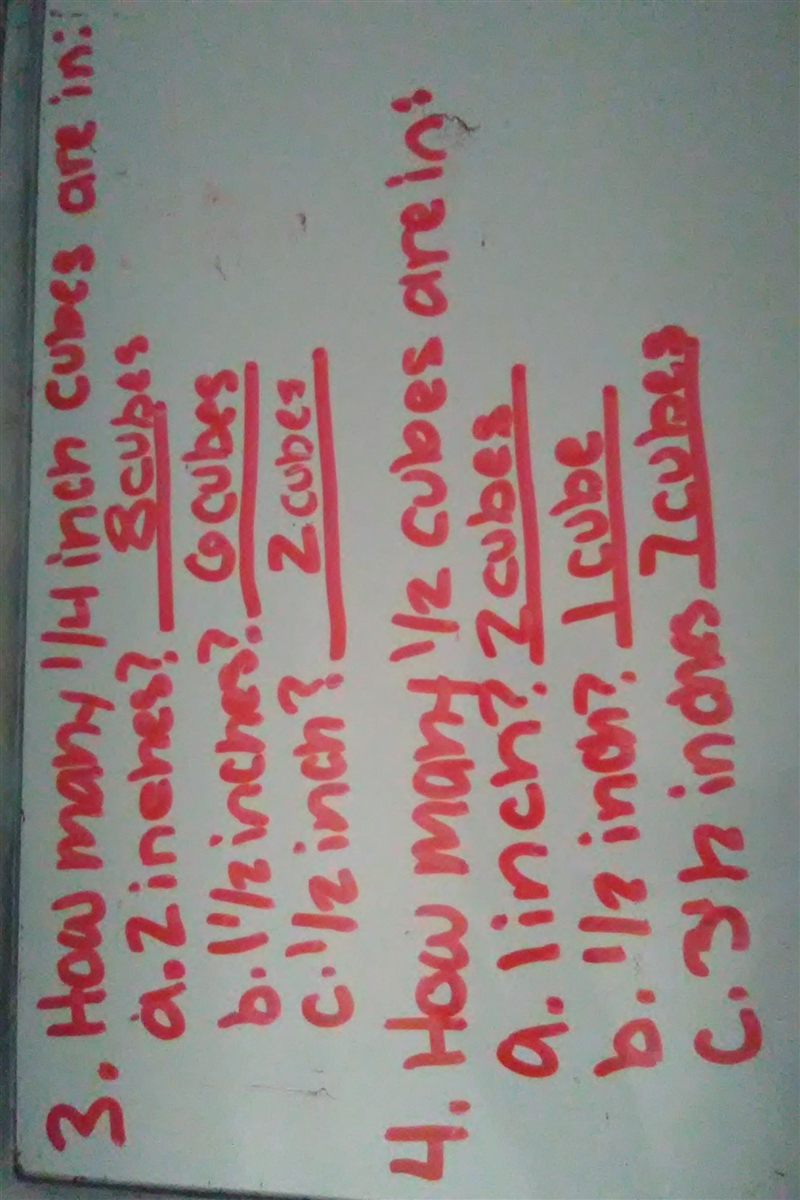 3. How many 1/4 inch cubes are in:
a. 2 inches? 8 cubes
b. 1 1/2 inches? 6 cubes
c. 1/2 inch? 2 cubes
4. How many 1/2 cubes are in:
a. 1 inch? 2 cubes
b. 1/2 inch? 1 cube
c. 3 1/2 inches 7 cubes